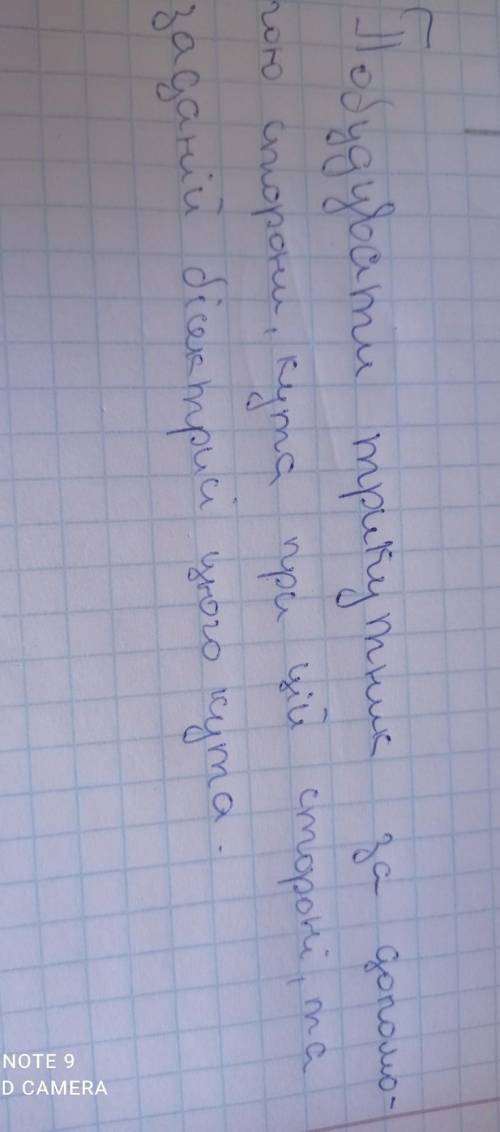 Побудувати трикутник за допомо-
гою сторони, кута при цій стороні, та
заданій бісектрисі цього кута.
NOTE 9
D CAMERA